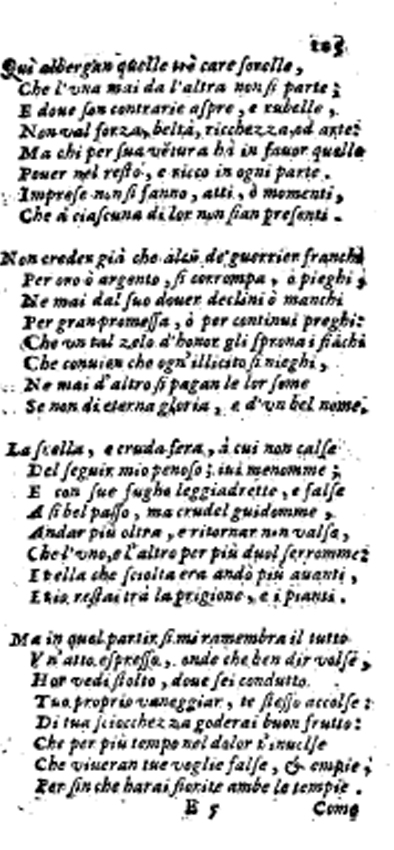 105
Quì albergan quelle trè care sorelle,
Che l'vna mai da l'altra non si parte;
E doue son contrarie aspre, e rubelle,
Non val forza, beltà, ricchezza, od arte:
Ma chi per sua vẽtura hà in fauor quelle
Pouer nel resto, e ricco in ogni parte.
Imprese non si fanno, atti, ò momenti,
Che à ciascuna di lor non sian presenti.
Non creder già che alcũ de' guerrier franchi
Per oro ò argento, si corrompa, ò pieghi;
Ne mai dal suo douer declini ò manchi
Per gran promessa, ò per continui preghi:
Che vn tal zelo d'honor gli sprona i fiãchi
Che conuien che ogn'illicito si nieghi,
Ne mai d'altro si pagan le lor some
Se non di eterna gloria, e d'vn bel nome.
La snella, e cruda fera, à cui non calse
Del seguir mio penoso; iui menomme;
E con sue fughe leggiadrette, e false
A sì bel passo, ma crudel guidomme,
Andar più oltra, e ritornar non valsa,
Che l'vno, e l'altro per più duol serromme:
Et ella che sciolta era andò più auanti,
Et io restai trà la prigione, e i pianti.
Ma in quel partir sì mi ramembra il tutto
Vn'atto espresso, onde che ben dir volse,
Hor vedi stolto, doue sei condutto
Tuo proprio vaneggiar, te stesso accolse:
Di tua sciocchezza goderai buon frutto:
Che per più tempo nel dolor t'inuolse
Che viueran tue voglie false, & empie;
Per sin che harai fiorite ambe le tempie.
E 5 Come